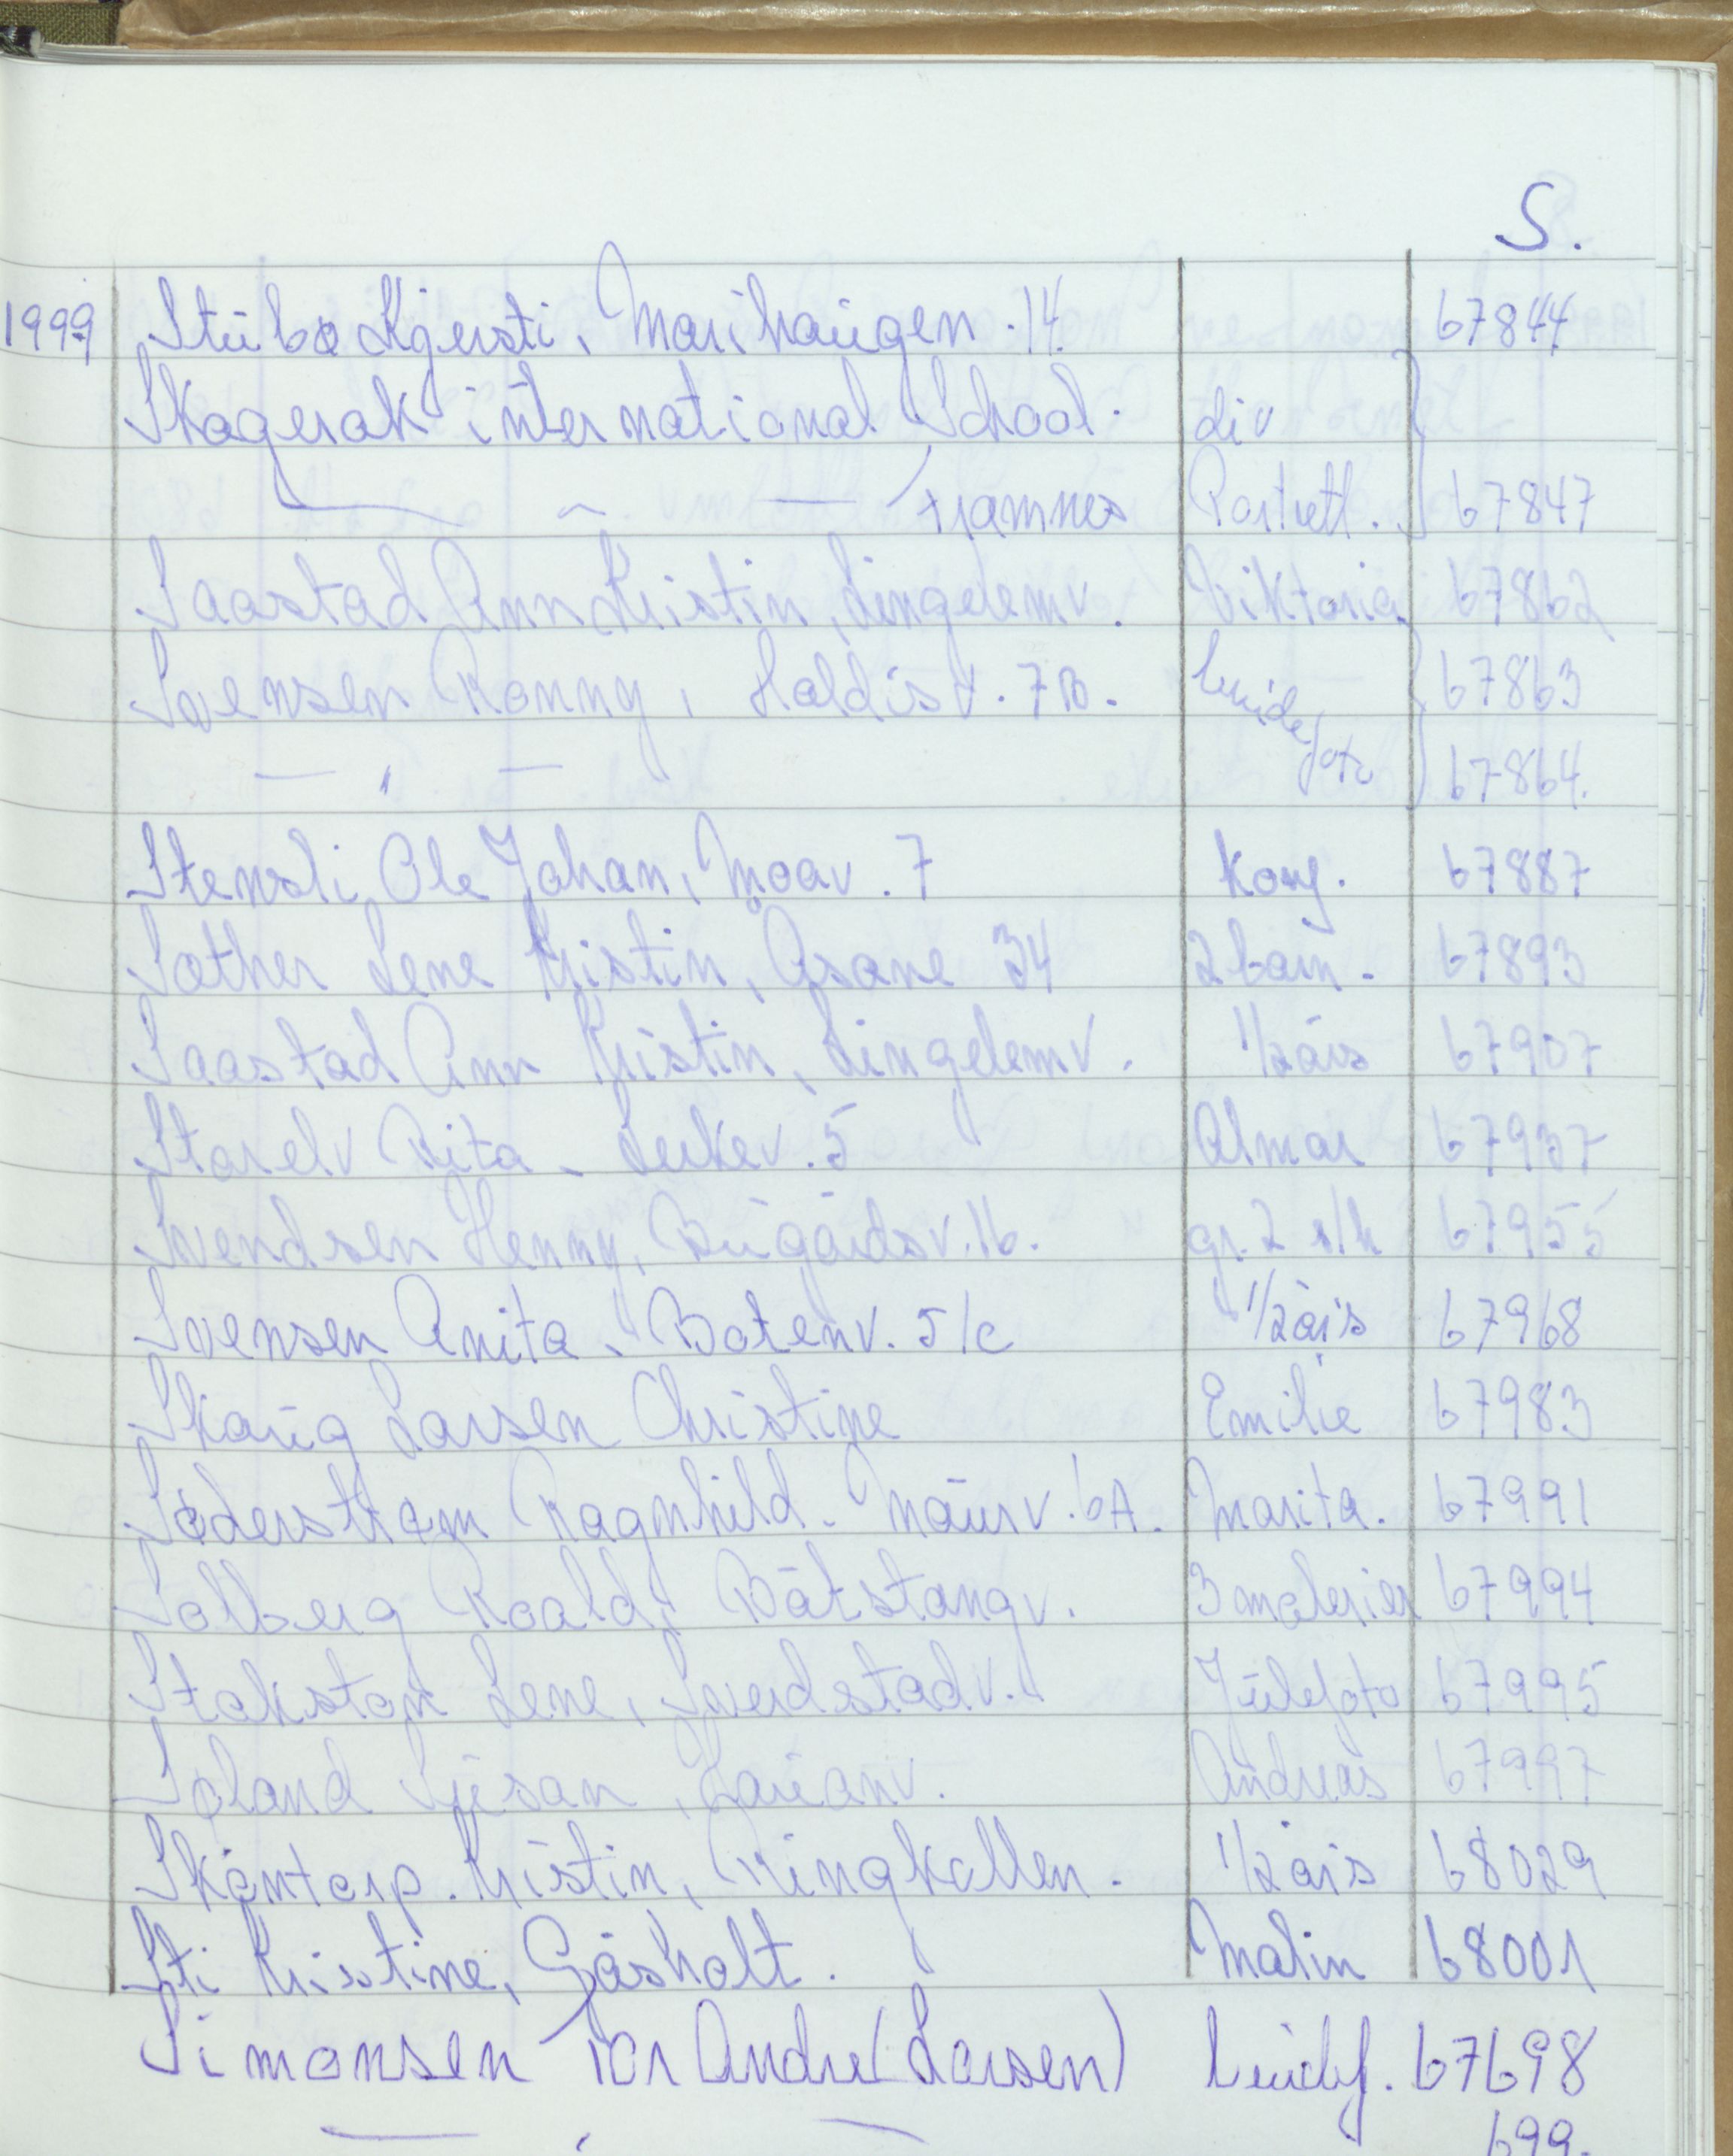 S.
1999 Stubø Kjersti, Marihaugen 14. 67844
Skagerak international School. div
— " — Framnes Portrett. 67847
Saastad Ann Kristin, Lingelemv. Viktoria 67862
Svensen Ronny, Haldisv. 7B. brude 67863
— " — foto 67864.
Stensli Ole Johan, Moav. 7 Konf. 67887
Sother Lene Kristin, Åsane 34 2 barn. 67893
Saastad Ann Kristin, Lingelemv. 1/2 års 67907
Storelv Rita, Lerkev. 5 Almar 67937
Svendsen Henny, Bugårdsv. 16. gr. 2 s/h 67955
Svensen Anita, Botenv. 5/c 1/2 års 67968
Skaug Larsen Christine Emilie 67983
Søderstrøm Ragnhild. Maurv. 6A. Marita. 67991
Solberg Roald, Båtstangv. 3 malerier 67994
Stokstad Lene, Sverdstadv. Julefoto 67995
Søland Susan, Haukanv. Andreas 67997
Skontorp. Kristin, Ringkollen. 1/2 års 68029
Sti Kristine, Gåsholt. Malin 68001
Simonsen Tor Andre (Larsen) brudef. 67698
— " — 699.